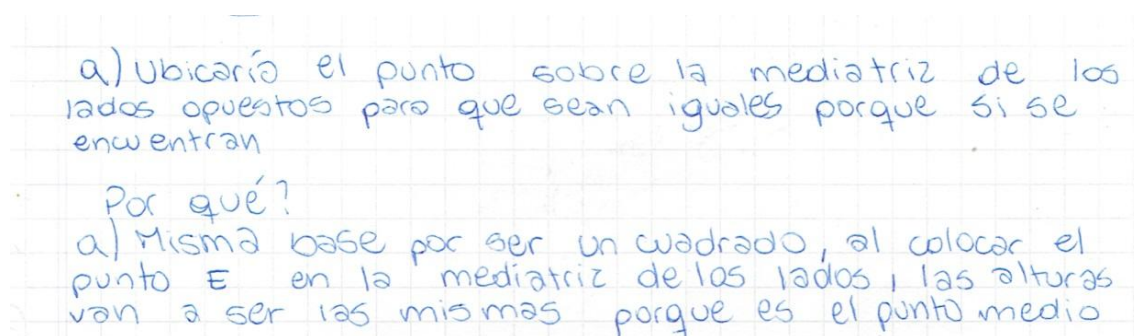 a) Ubicaría el punto sobre la mediatriz de los
lados opuestos para que sean iguales porque si se
encuentran
Por qué?
a) Misma base por ser un cuadrado, al colocar el
punto E en la mediatriz de los lados, las alturas
van a ser las mismas porque es el punto medio